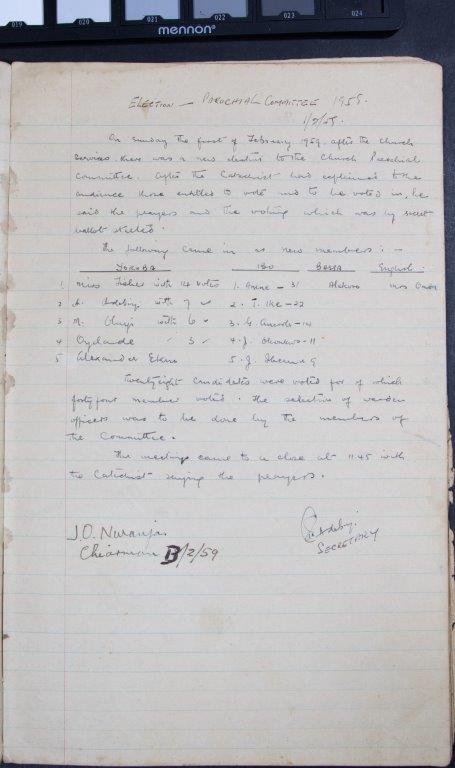 019 020 021 022 023 024
mennon
ELECTION — PAROCHIAL COMMITTEE 1959.
On Sunday the first of February 1959 after the Church
services there was a new election to the Church Parochial
Committee. After the Catechist had explained to the
audience those entitled to vote and to be voted in, he
said the prayers and the voting which was by secret
ballot started.
The following came in as new members : —
YORUBA IBO English
1. Miss Fisher with 14 votes 1. 31 Mrs
2 A. Adebiyi with 7 2. T. Ike — 22
3 M. with 6 3. G. — 14
4 Oyelande 5 4. J. Okonkwo — 11
5 Alexander 5. J. 9
Twenty eight candidates were voted for of which
forty four member voted. The selection of warden
officers was to be done by the members of
the Committee.
The meeting came to a close at 11.45 with
the Catechist saying the prayers.
J.O.
Chairman /2/59
SECRETARY